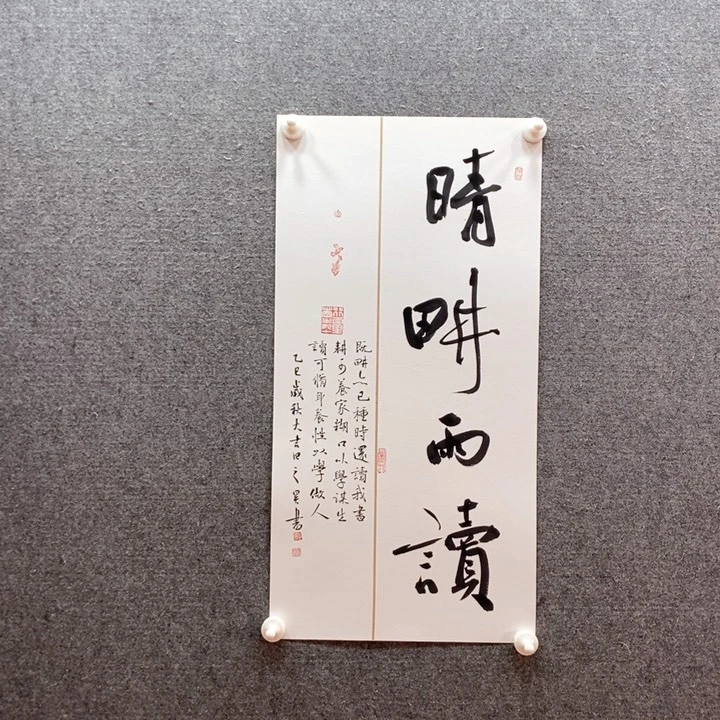 晴畊雨讀
既畊亦已種時還讀我書
耕可養家糊口以學謀生
讀可脩身養性以學做人
乙巳歲秋大吉日之書